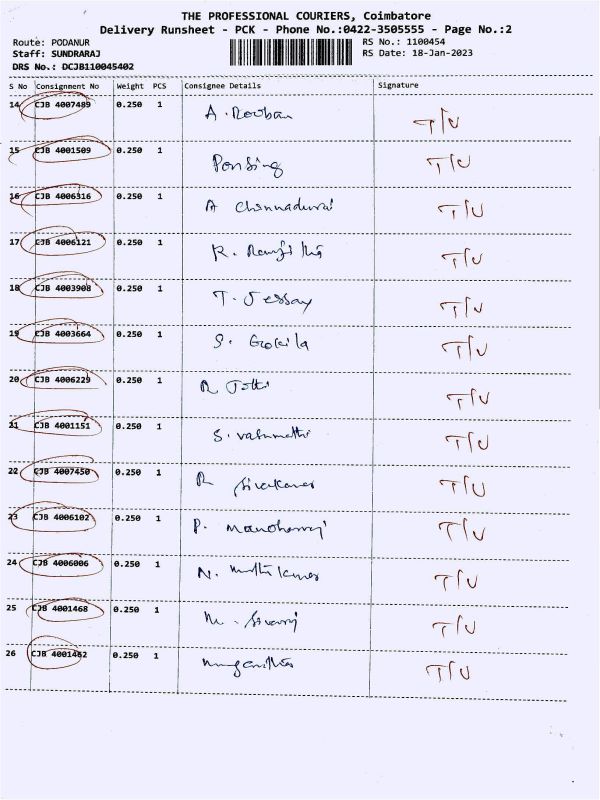 THE PROFESSIONAL COURIERS, Coimbatore
Delivery Runsheet - PCK - Phone No.:0422-3505555 - Page No.:2
Route: PODANUR
Staff: SUNDRARAJ
DRS No.: DCJB110045402
RS No.: 1100454
RS Date: 18-Jan-2023
S No Consignment No Weight PCS Consignee Details Signature
14 CJB 4007489 0.250 1 A. Rooban T/U
15 CJB 4001509 0.250 1 Ponsing T/U
16 CJB 4006316 0.250 1 A Chinnadurai T/U
17 CJB 4006121 0.250 1 K. T/U
18 CJB 4003908 0.250 1 T. Jessay T/U
19 CJB 4003664 0.250 1 S. Gokila T/U
20 CJB 4006229 0.250 1 R Jothi T/U
21 CJB 4001151 0.250 1 S. vasumathi T/U
22 CJB 4007450 0.250 1 R Sivakumar T/U
23 CJB 4006102 0.250 1 P. Manoharaj T/U
24 CJB 4006006 0.250 1 N. Muthukumar T/U
25 CJB 4001468 0.250 1 M. Sivaraj T/U
26 CJB 4001462 0.250 1 T/U